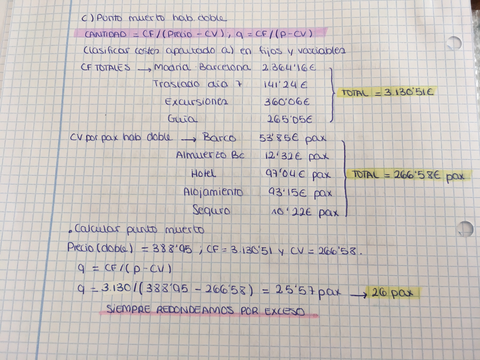 C) Punto muerto hab. doble
CANTIDAD = CF/(Precio - CV), q = CF/(P-CV)
Clasificar costes apartado a) en fijos y variables
CF TOTALES → Madrid Barcelona 2.364'16€
Traslado dia 7 141'24€
Excursiones 360'06€
Guia 265'05€
TOTAL = 3.130'51€
CV por pax hab doble → Barco 53'85€ pax
Almuerzo Bc 12'32€ pax
Hotel 97'04€ pax
Alojamiento 93'15€ pax
Seguro 10'22€ pax
TOTAL = 266'58€ pax
. Calcular punto muerto
Precio (doble) = 388'95 ; CF = 3.130'51 y CV = 266'58.
q = CF/(P-CV)
q = 3.130/(388'95 - 266'58) = 25'57 pax → 26 pax
SIEMPRE REDONDEAMOS POR EXCESO